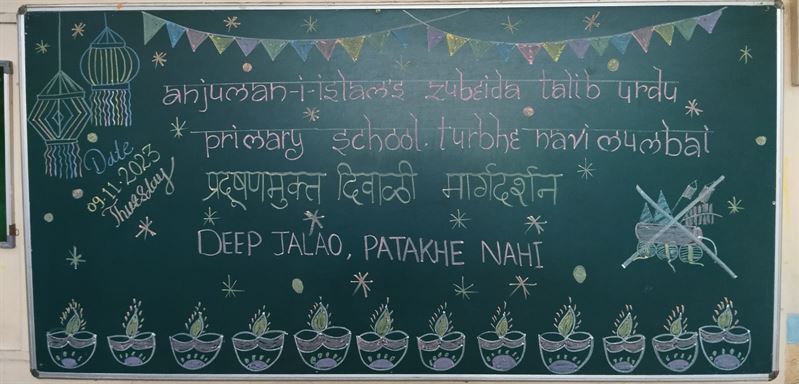 anjuman-i-islam's zubeida talib urdu
primary school. turbhe navi mumbai
Date
09.11.2023
Thursday
प्रदूषणमुक्त दिवाळी मार्गदर्शन
DEEP JALAO, PATAKHE NAHI